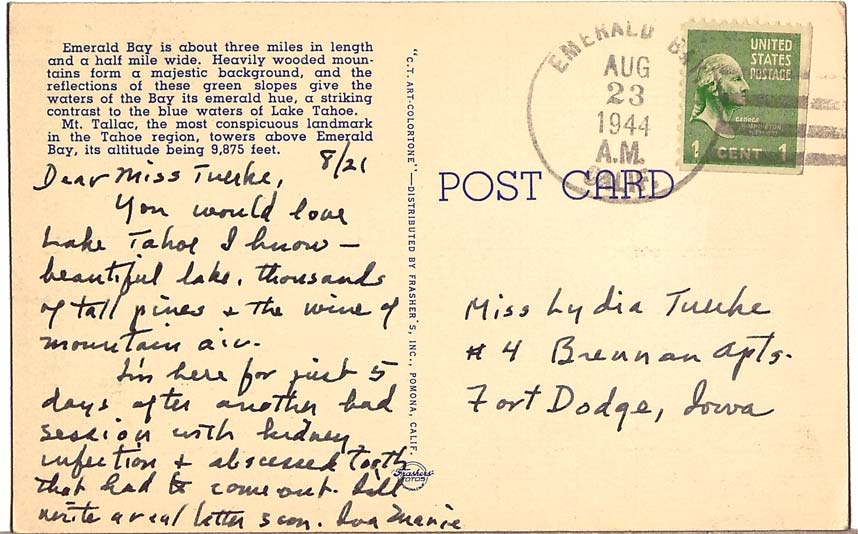 Emerald Bay is about three miles in length
and a half mile wide. Heavily wooded moun-
tains form a majestic background, and the
reflections of these green slopes give the
waters of the Bay its emerald hue, a striking
contrast to the blue waters of Lake Tahoe.
Mt. Tallac, the most conspicuous landmark
in the Tahoe region, towers above Emerald
Bay, its altitude being 9,875 feet.
8/21
Dear Miss Tuerke,
You would love
Lake Tahoe I know —
beautiful lake, thousands
of tall pines + the wine of
mountain air.
I'm here for just 5
days after another bad
session with kidney
infection + abscessed tooth
that had to come out. Will
write a real letter soon. Iva Marie
"C.T. ART-COLORTONE"—DISTRIBUTED BY FRASHER'S, INC., POMONA, CALIF.
Frashers
FOTOS
EMERALD BAY
AUG
23
1944
A.M.
CALIF.
UNITED
STATES
POSTAGE
GEORGE
WASHINGTON
1 CENT 1
POST CARD
Miss Lydia Tuerke
# 4 Brennan Apts.
Fort Dodge, Iowa